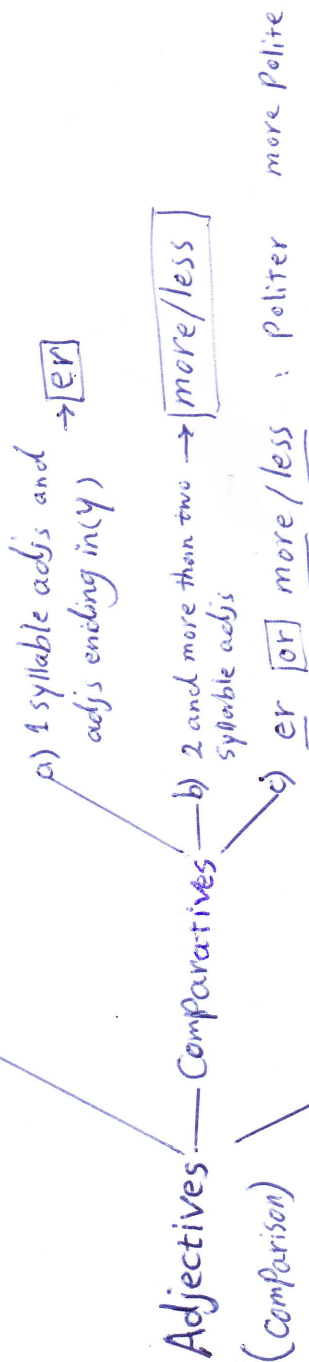 Adjectives
(comparison)
Comparatives
a) 1 syllable adjs and
adjs ending in (y) → er
b) 2 and more than two → more/less
syllable adjs
c) er or more/less : Politer more Polite